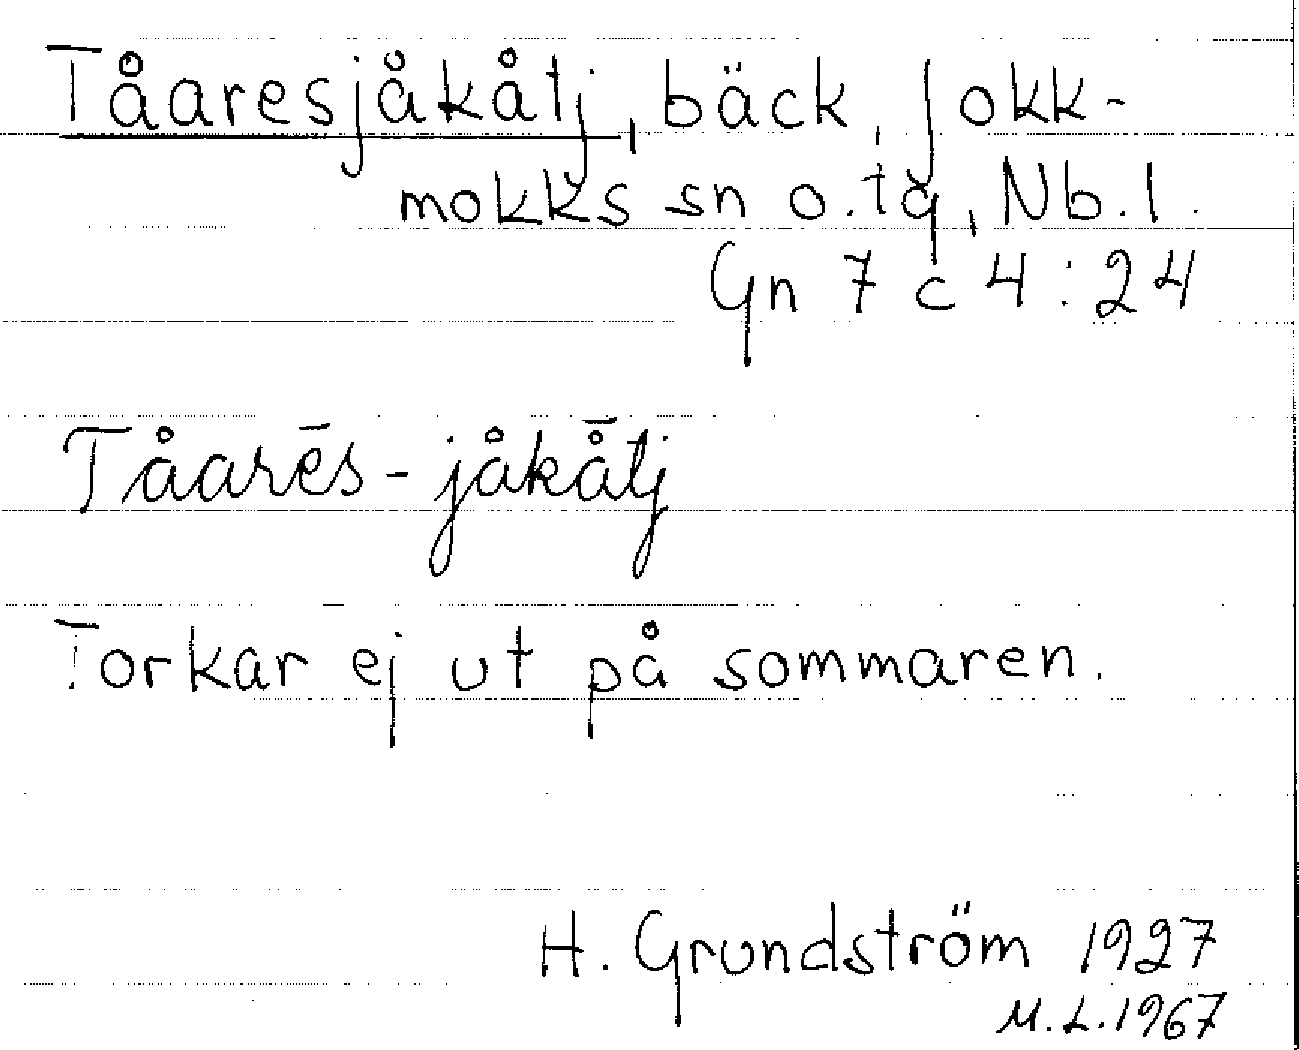 Tåaresjåkåtj, bäck, Jokk-
mokks sn o. tg, Nb. l.
Gn 7 c 4:24
Tåarēs-jåkå̄tj
Torkar ej ut på sommaren.
H. Grundström 1927
M.L. 1967